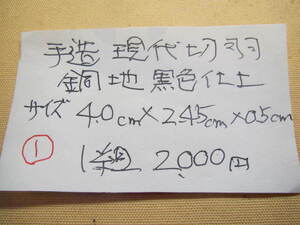 手造 現代切羽
銅地黒色仕上
サイズ 4.0cm×2.45cm×0.5cm
① 1組 2,000円